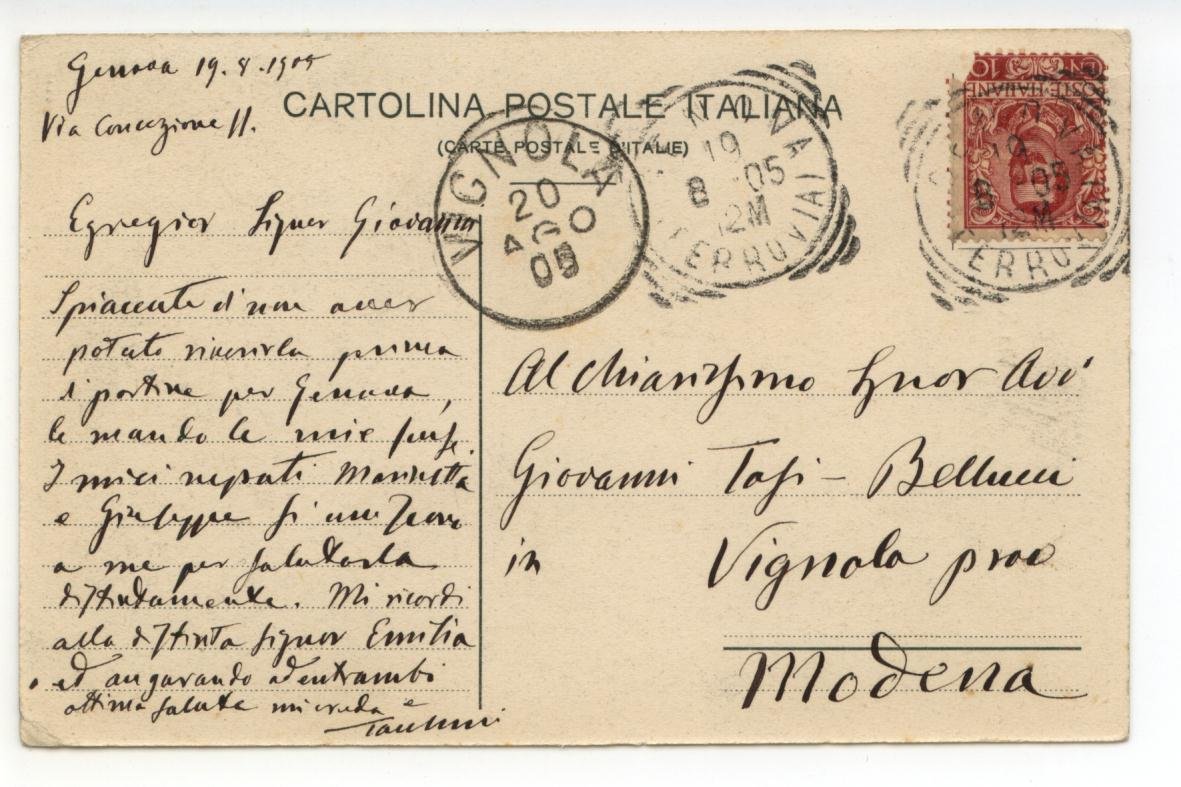 Genova 19.8.1905
Via Concezione 11.
CARTOLINA POSTALE ITALIANA
(CARTE POSTALE D'ITALIE)
VIGNOLA
20
AGO
05
19
8 05
12M
FERROVIA
19
8 05
12M
FERROVIA
CEN. 10
POSTE ITALIANE
Egregior Signor Giovanni
Spiacente di non aver
potuto riverirla prima
di partire per Genova,
le mando le mie scuse.
I miei nepoti Marinetta
e Giuseppe si uniscono
a me per salutarla
distintamente. Mi ricordi
alla distinta signor Emilia
ed augurando ad entrambi
ottima salute mi creda
Al chiarissimo Signor Avv
Giovanni Tosi - Bellucci
in Vignola prov
Modena